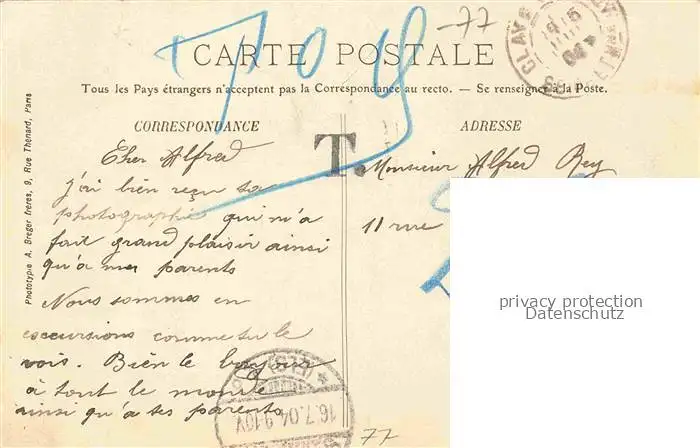 -77
CARTE POSTALE
Tous les Pays étrangers n'acceptent pas la Correspondance au recto. — Se renseigner à la Poste.
CORRESPONDANCE
Cher Alfred
j'ai bien reçu ta
photographie qui m'a
fait grand plaisir ainsi
qu'à mes parents
Nous sommes en
excursions comme tu le
vois. Bien le bonjour
à tout le monde
ainsi qu'à tes parents
T.
ADRESSE
Monsieur Alfred Rey
11 rue
privacy protection
Datenschutz
Phototypie A. Breger frères, 9, Rue Thénard, Paris
16.7.04.9-10V
77